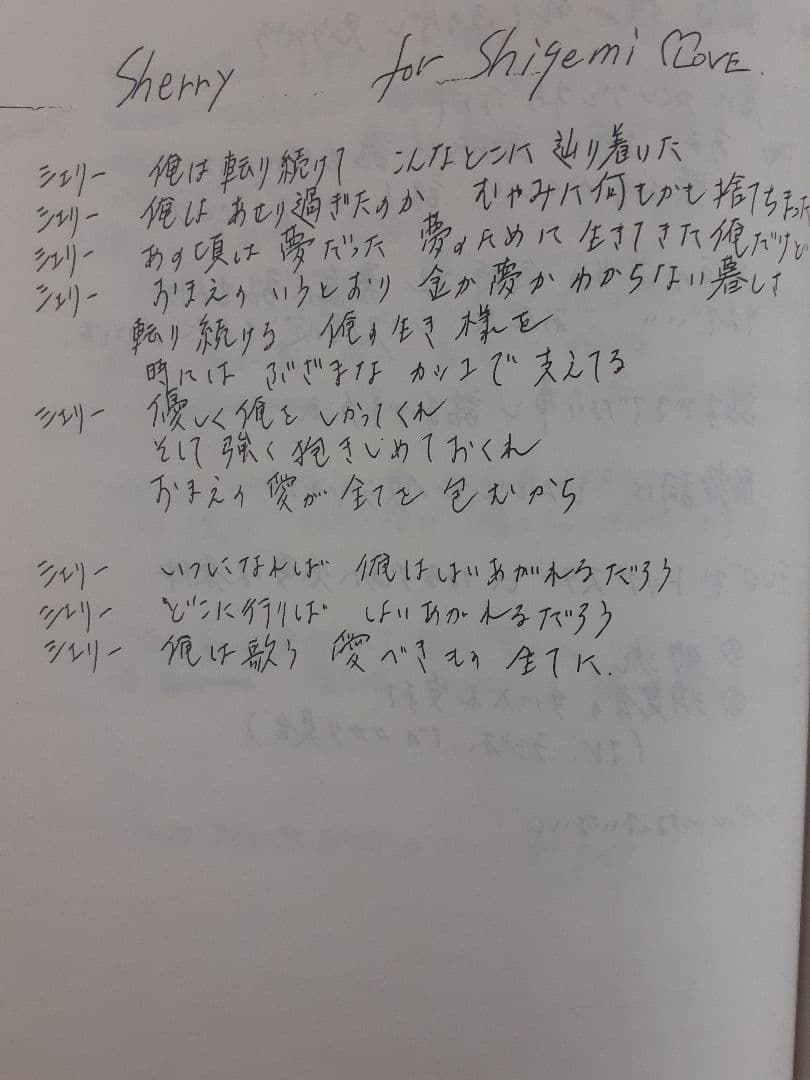 Sherry for Shigemi ♡LOVE.
シェリー 俺は転り続けて こんなとこに辿り着いた
シェリー 俺はあせり過ぎたのか むやみに何もかも捨てちまった
シェリー あの頃は夢だった 夢のために生きてきた俺だけど
シェリー おまえのいうとおり 金か夢かわからない暮しさ
転り続ける 俺の生き様を
時には ぶざまな カッコで支えてる
シェリー 優しく俺をしかってくれ
そして強く抱きしめておくれ
おまえの愛が全てを包むから
シェリー いつになれば 俺ははいあがれるだろう
シェリー どこに行けば はいあがれるだろう
シェリー 俺は歌う 愛べきもの全てに.